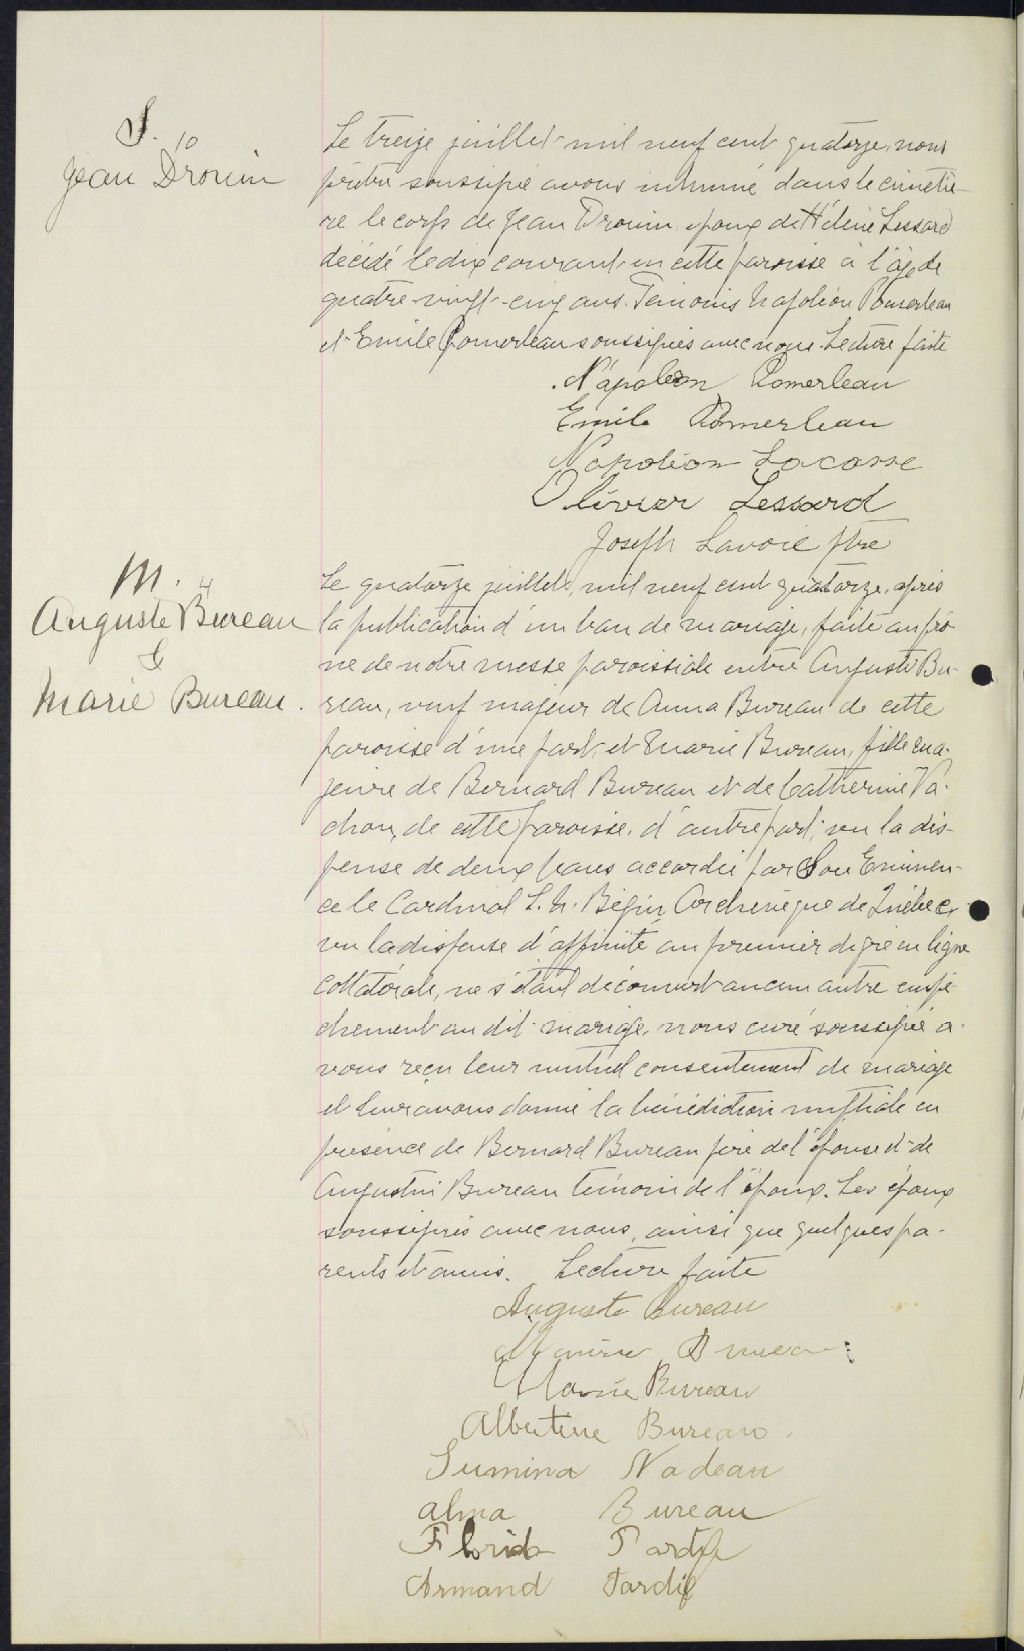 S. 10
Jean Drouin
Le treize juillet mil neuf cent quatorze, nous
prêtre soussigné avons inhumé dans le cimetiè-
re le corps de Jean Drouin, époux de Hélène Lessard
décédé le dix courant en cette paroisse à l'âge de
quatre-vingt-cinq ans. Témoins Napoléon Pomerleau
et Emile Pomerleau soussignés avec nous. Lecture faite
Napoleon Pomerleau
Emile Pomerleau
Napoléon Lacasse
Olivier Lessard
Joseph Lavoie ptre
M. 4
Auguste Bureau
&
Marie Bureau.
Le quatorze juillet, mil neuf cent quatorze, après
la publication d'un ban de mariage, faite au prô
ne de notre messe paroissiale entre Auguste Bu-
reau, veuf majeur de Anna Bureau de cette
paroisse d'une part et Marie Bureau, fille ma-
jeure de Bernard Bureau et de Catherine Va-
chon, de cette paroisse, d'autre part; vu la dis-
pense de deux bans accordée par Son Eminen-
ce le Cardinal L. N. Bégin Archevêque de Québec,
vu la dispense d'affinité au premier degré en ligne
collatérale, ne s'étant découvert aucun autre empê-
chement au dit mariage, nous curé soussigné a-
vons reçu leur mutuel consentement de mariage
et leur avons donné la bénédiction nuptiale en
présence de Bernard Bureau père de l'épouse et de
Augustin Bureau témoin de l'époux. Les époux
soussignés avec nous, ainsi que quelques pa-
rents et amis. Lecture faite
Auguste Bureau
Bureau
Marie Bureau
Albertine Bureau.
Lumina Nadeau
Alma Bureau
Florida Tardif
Armand Tardif